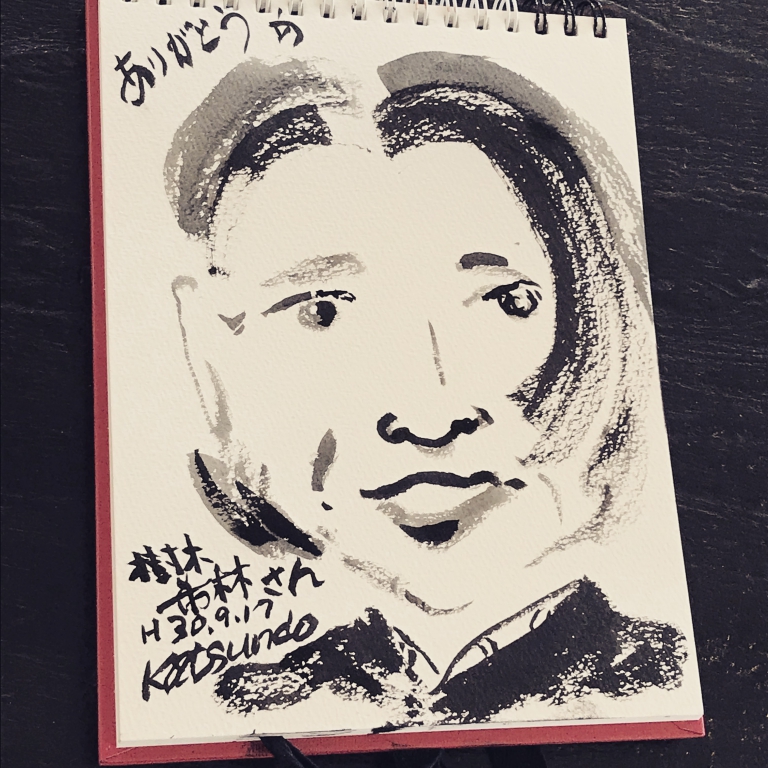 ありがとう の
希林さん
H 30.9.17
Katsundo